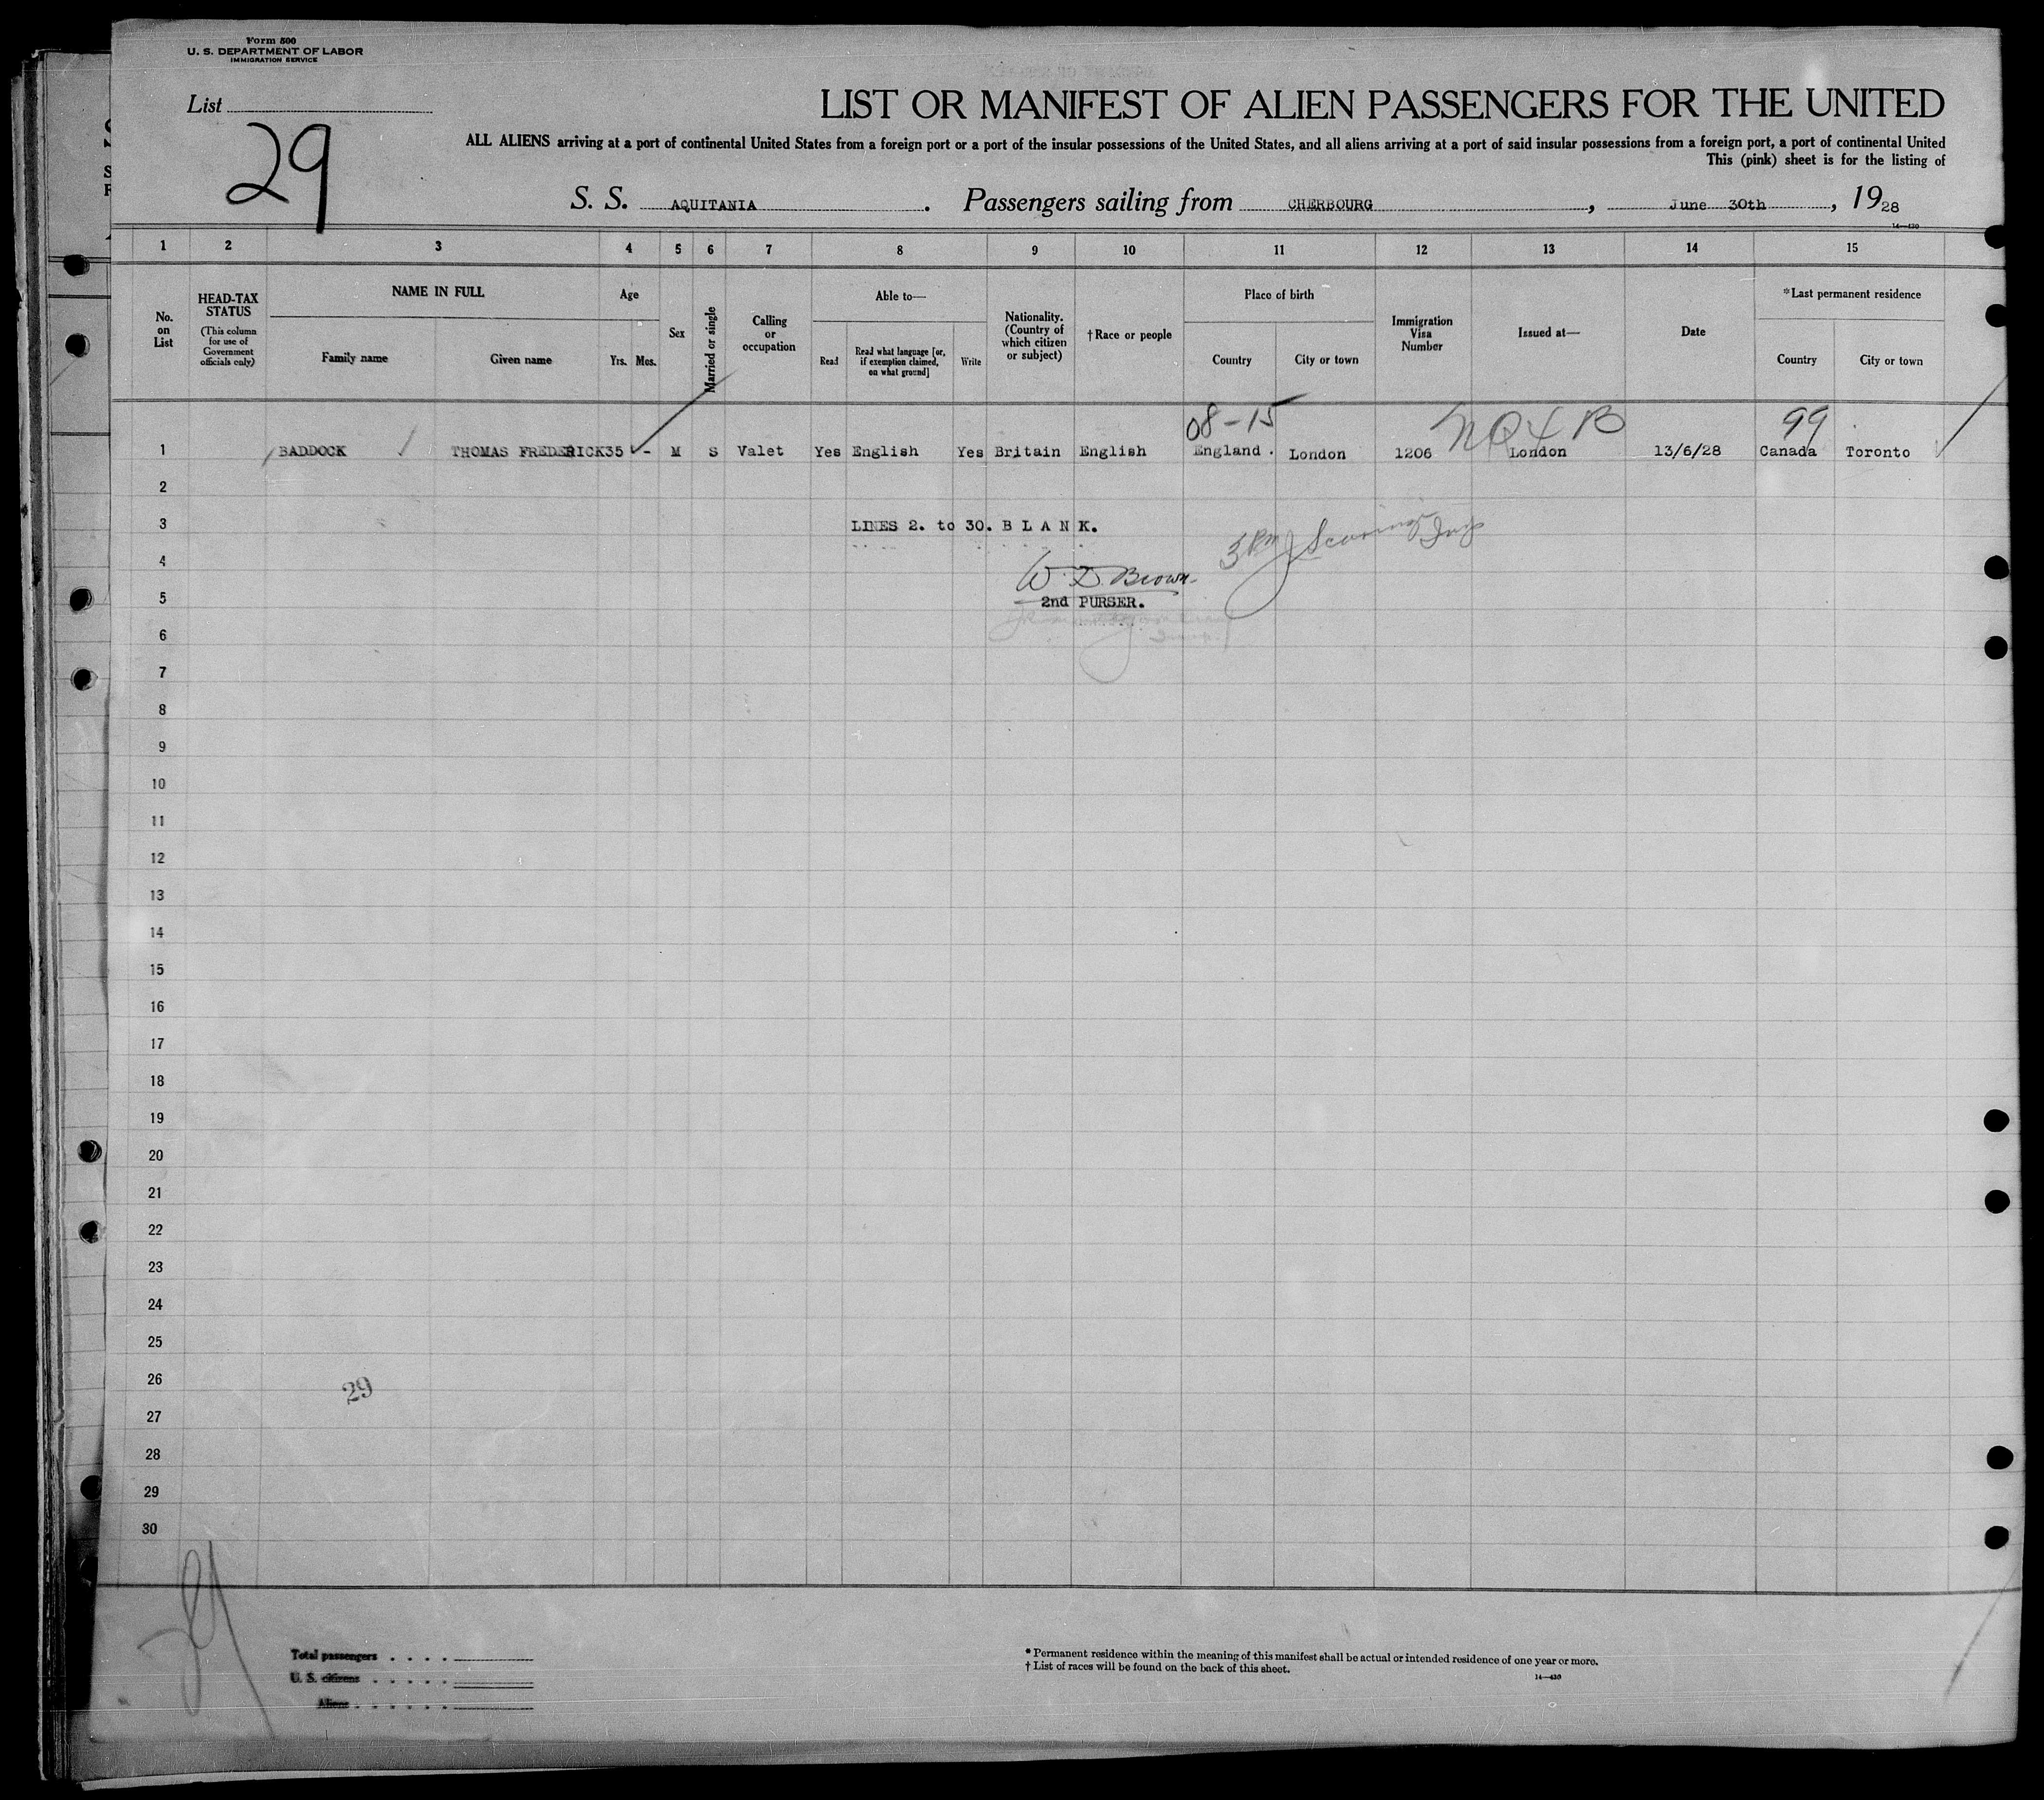 Form 500
U. S. DEPARTMENT OF LABOR
IMMIGRATION SERVICE
List
29
LIST OR MANIFEST OF ALIEN PASSENGERS FOR THE UNITED
ALL ALIENS arriving at a port of continental United States from a foreign port or a port of the insular possessions of the United States, and all aliens arriving at a port of said insular possessions from a foreign port, a port of continental United
This (pink) sheet is for the listing of
S. S. AQUITANIA. Passengers sailing from CHERBOURG, June 30th, 1928
14—430
1 2 3 4 5 6 7 8 9 10 11 12 13 14 15
No. on List
HEAD-TAX STATUS
(This column for use of Government officials only)
NAME IN FULL
Family name
Given name
Age
Yrs. Mos.
Sex
Married or single
Calling or occupation
Able to—
Read
Read what language [or, if exemption claimed, on what ground]
Write
Nationality. (Country of which citizen or subject)
†Race or people
Place of birth
Country
City or town
Immigration Visa Number
Issued at—
Date
*Last permanent residence
Country
City or town
08-15 NQ4B 99
1 BADDOCK THOMAS FREDERICK 35 - M S Valet Yes English Yes Britain English England. London 1206 London 13/6/28 Canada Toronto
2
3 LINES 2. to 30. B L A N K.
4
W. D. Brown
5 2nd PURSER.
6
7
8
9
10
11
12
13
14
15
16
17
18
19
20
21
22
23
24
25
26
29
27
28
29
30
29
Total passengers
U. S. citizens
Aliens
* Permanent residence within the meaning of this manifest shall be actual or intended residence of one year or more.
† List of races will be found on the back of this sheet.
14—430